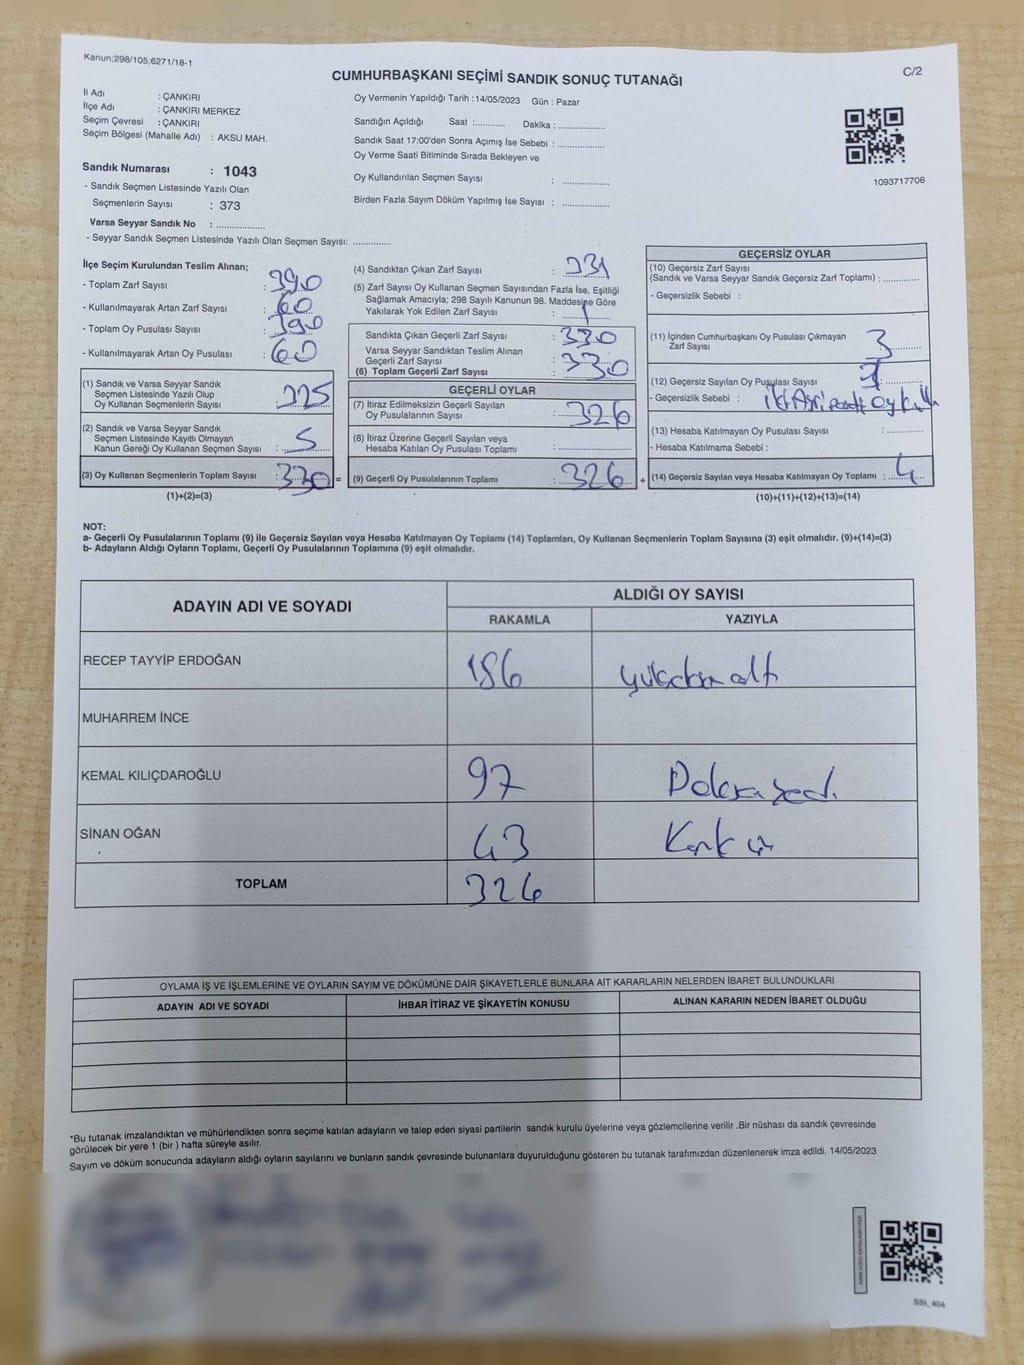 Kanun;298/105;6271/18-1
C/2
CUMHURBAŞKANI SEÇİMİ SANDIK SONUÇ TUTANAĞI
İl Adı : ÇANKIRI
İlçe Adı : ÇANKIRI MERKEZ
Seçim Çevresi : ÇANKIRI
Seçim Bölgesi (Mahalle Adı) : AKSU MAH.
Sandık Numarası : 1043
- Sandık Seçmen Listesinde Yazılı Olan
Seçmenlerin Sayısı : 373
Varsa Seyyar Sandık No : ..................
- Seyyar Sandık Seçmen Listesinde Yazılı Olan Seçmen Sayısı: ..............
Oy Vermenin Yapıldığı Tarih : 14/05/2023 Gün : Pazar
Sandığın Açıldığı Saat :........... Dakika : .................
Sandık Saat 17:00'den Sonra Açımış İse Sebebi : .................
Oy Verme Saati Bitiminde Sırada Bekleyen ve
Oy Kullandırılan Seçmen Sayısı : .................
Birden Fazla Sayım Döküm Yapılmış İse Sayısı : .................
1093717706
İlçe Seçim Kurulundan Teslim Alınan;
- Toplam Zarf Sayısı : 390
- Kullanılmayarak Artan Zarf Sayısı : 60
- Toplam Oy Pusulası Sayısı : 390
- Kullanılmayarak Artan Oy Pusulası : 60
(1) Sandık ve Varsa Seyyar Sandık
Seçmen Listesinde Yazılı Olup
Oy Kullanan Seçmenlerin Sayısı : 325
(2) Sandık ve Varsa Seyyar Sandık
Seçmen Listesinde Kayıtlı Olmayan
Kanun Gereği Oy Kullanan Seçmen Sayısı : 5
(3) Oy Kullanan Seçmenlerin Toplam Sayısı : 330 =
(1)+(2)=(3)
(4) Sandıktan Çıkan Zarf Sayısı : 331
(5) Zarf Sayısı Oy Kullanan Seçmen Sayısından Fazla İse, Eşitliği
Sağlamak Amacıyla; 298 Sayılı Kanunun 98. Maddesine Göre
Yakılarak Yok Edilen Zarf Sayısı : 1
Sandıkta Çıkan Geçerli Zarf Sayısı : 330
Varsa Seyyar Sandıktan Teslim Alınan
Geçerli Zarf Sayısı
(6) Toplam Geçerli Zarf Sayısı : 330
GEÇERLİ OYLAR
(7) İtiraz Edilmeksizin Geçerli Sayılan
Oy Pusulalarının Sayısı : 326
(8) İtiraz Üzerine Geçerli Sayılan veya
Hesaba Katılan Oy Pusulası Toplamı : .................
(9) Geçerli Oy Pusulalarının Toplamı : 326 +
GEÇERSİZ OYLAR
(10) Geçersiz Zarf Sayısı
(Sandık ve Varsa Seyyar Sandık Geçersiz Zarf Toplamı) : ...........
- Geçersizlik Sebebi :
(11) İçinden Cumhurbaşkanı Oy Pusulası Çıkmayan
Zarf Sayısı : 3
(12) Geçersiz Sayılan Oy Pusulası Sayısı : 1
- Geçersizlik Sebebi : iki Ayrı
(13) Hesaba Katılmayan Oy Pusulası Sayısı : ...........
- Hesaba Katılmama Sebebi :
(14) Geçersiz Sayılan veya Hesaba Katılmayan Oy Toplamı : 4
(10)+(11)+(12)+(13)=(14)
NOT:
a- Geçerli Oy Pusulalarının Toplamı (9) ile Geçersiz Sayılan veya Hesaba Katılmayan Oy Toplamı (14) Toplamları, Oy Kullanan Seçmenlerin Toplam Sayısına (3) eşit olmalıdır. (9)+(14)=(3)
b- Adayların Aldığı Oyların Toplamı, Geçerli Oy Pusulalarının Toplamına (9) eşit olmalıdır.
ADAYIN ADI VE SOYADI
ALDIĞI OY SAYISI
RAKAMLA YAZIYLA
RECEP TAYYİP ERDOĞAN 186 yükseksen altı
MUHARREM İNCE
KEMAL KILIÇDAROĞLU 97 Doksan yedi
SİNAN OĞAN 43 Kırk üç
TOPLAM 326
OYLAMA İŞ VE İŞLEMLERİNE VE OYLARIN SAYIM VE DÖKÜMÜNE DAİR ŞİKAYETLERLE BUNLARA AİT KARARLARIN NELERDEN İBARET BULUNDUKLARI
ADAYIN ADI VE SOYADI İHBAR İTİRAZ VE ŞİKAYETİN KONUSU ALINAN KARARIN NEDEN İBARET OLDUĞU
*Bu tutanak imzalandıktan ve mühürlendikten sonra seçime katılan adayların ve talep eden siyasi partilerin sandık kurulu üyelerine veya gözlemcilerine verilir .Bir nüshası da sandık çevresinde
görülecek bir yere 1 (bir ) hafta süreyle asılır.
Sayım ve döküm sonucunda adayların aldığı oyların sayılarını ve bunların sandık çevresinde bulunanlara duyurulduğunu gösteren bu tutanak tarafımızdan düzenlenerek imza edildi. 14/05/2023
SSI_404